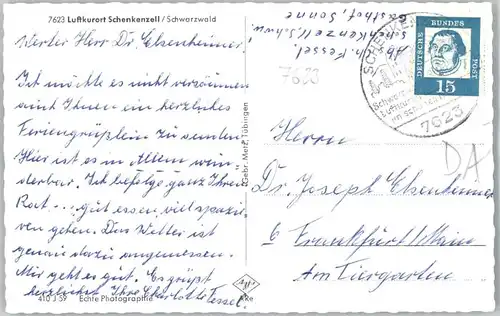 7623 Luftkurort Schenkenzell / Schwarzwald
Werter Herr Dr. Elsenheimer,
Ich möchte es nicht versäumen
auch Ihnen ein herzliches
Feriengrüßlein zu senden
Hier ist es in Allem wun-
derbar. Ich befolge ganz Ihren
Rat... gut essen, viel spazie-
ren gehen. Das Wetter ist
genau dazu angemessen.
Mir geht es gut. Es grüßt
herzlichst, Ihre Charlotte Fessel.
410 J 59 Echte Photographie
Gebr. Metz, Tübingen
Agfa
Ake
Abs. Ch. Fessel,
Schenkenzell/Schw.
Gasthof, Sonne
7623
SCHENKEN
Schwarz
Luftkur
7623
DEUTSCHE
BUNDES
POST
15
Herrn
DA
Dr. Joseph Elsenheimer
6 Frankfurt/Main
Am Tiergarten